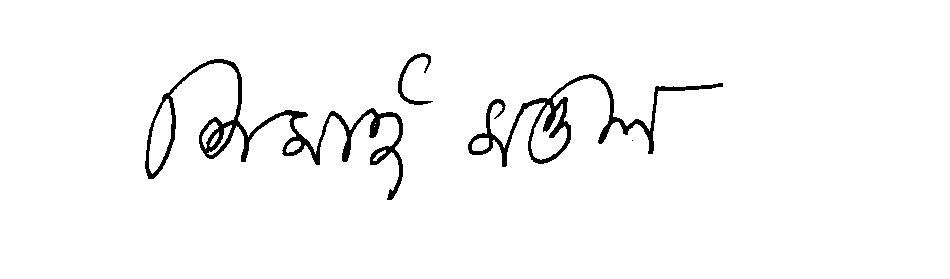 নিমাই মণ্ডল